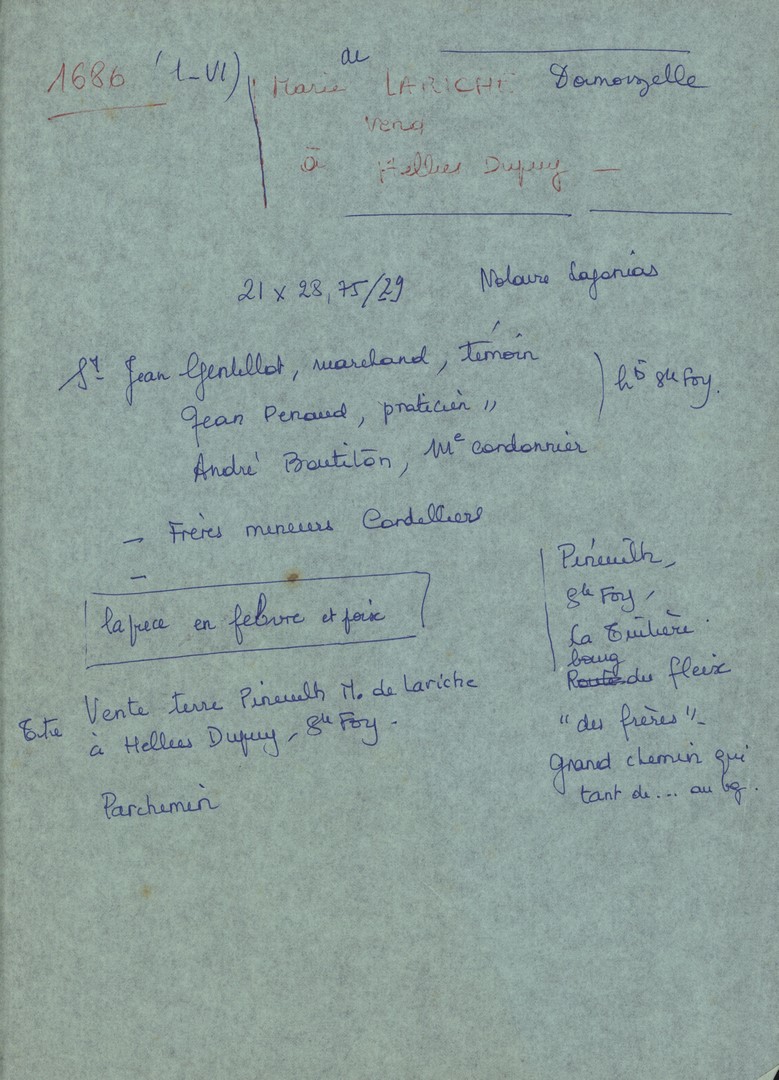 1686 (1-VI)
de
Marie LARICHE Damoizelle
Vend
à Hellies Dupuy —
21 x 28,75/29 Notaire Lajonias
Sr Jean Gentillot, marchand, témoin
Jean Penaud, praticien "
André Boutiton, Me cordonnier
hts Ste Foy.
- Frères mineurs Cordelliers
-
la piece en felbvre et foix
Pineuilh,
Ste Foy,
La Tuilière.
bourg
Route du fleix
"des frères"-
Grand chemin qui
tant de... au bg.
Titre Vente terre Pineuilh M. de Lariche
à Hellies Dupuy, Ste Foy -
Parchemin